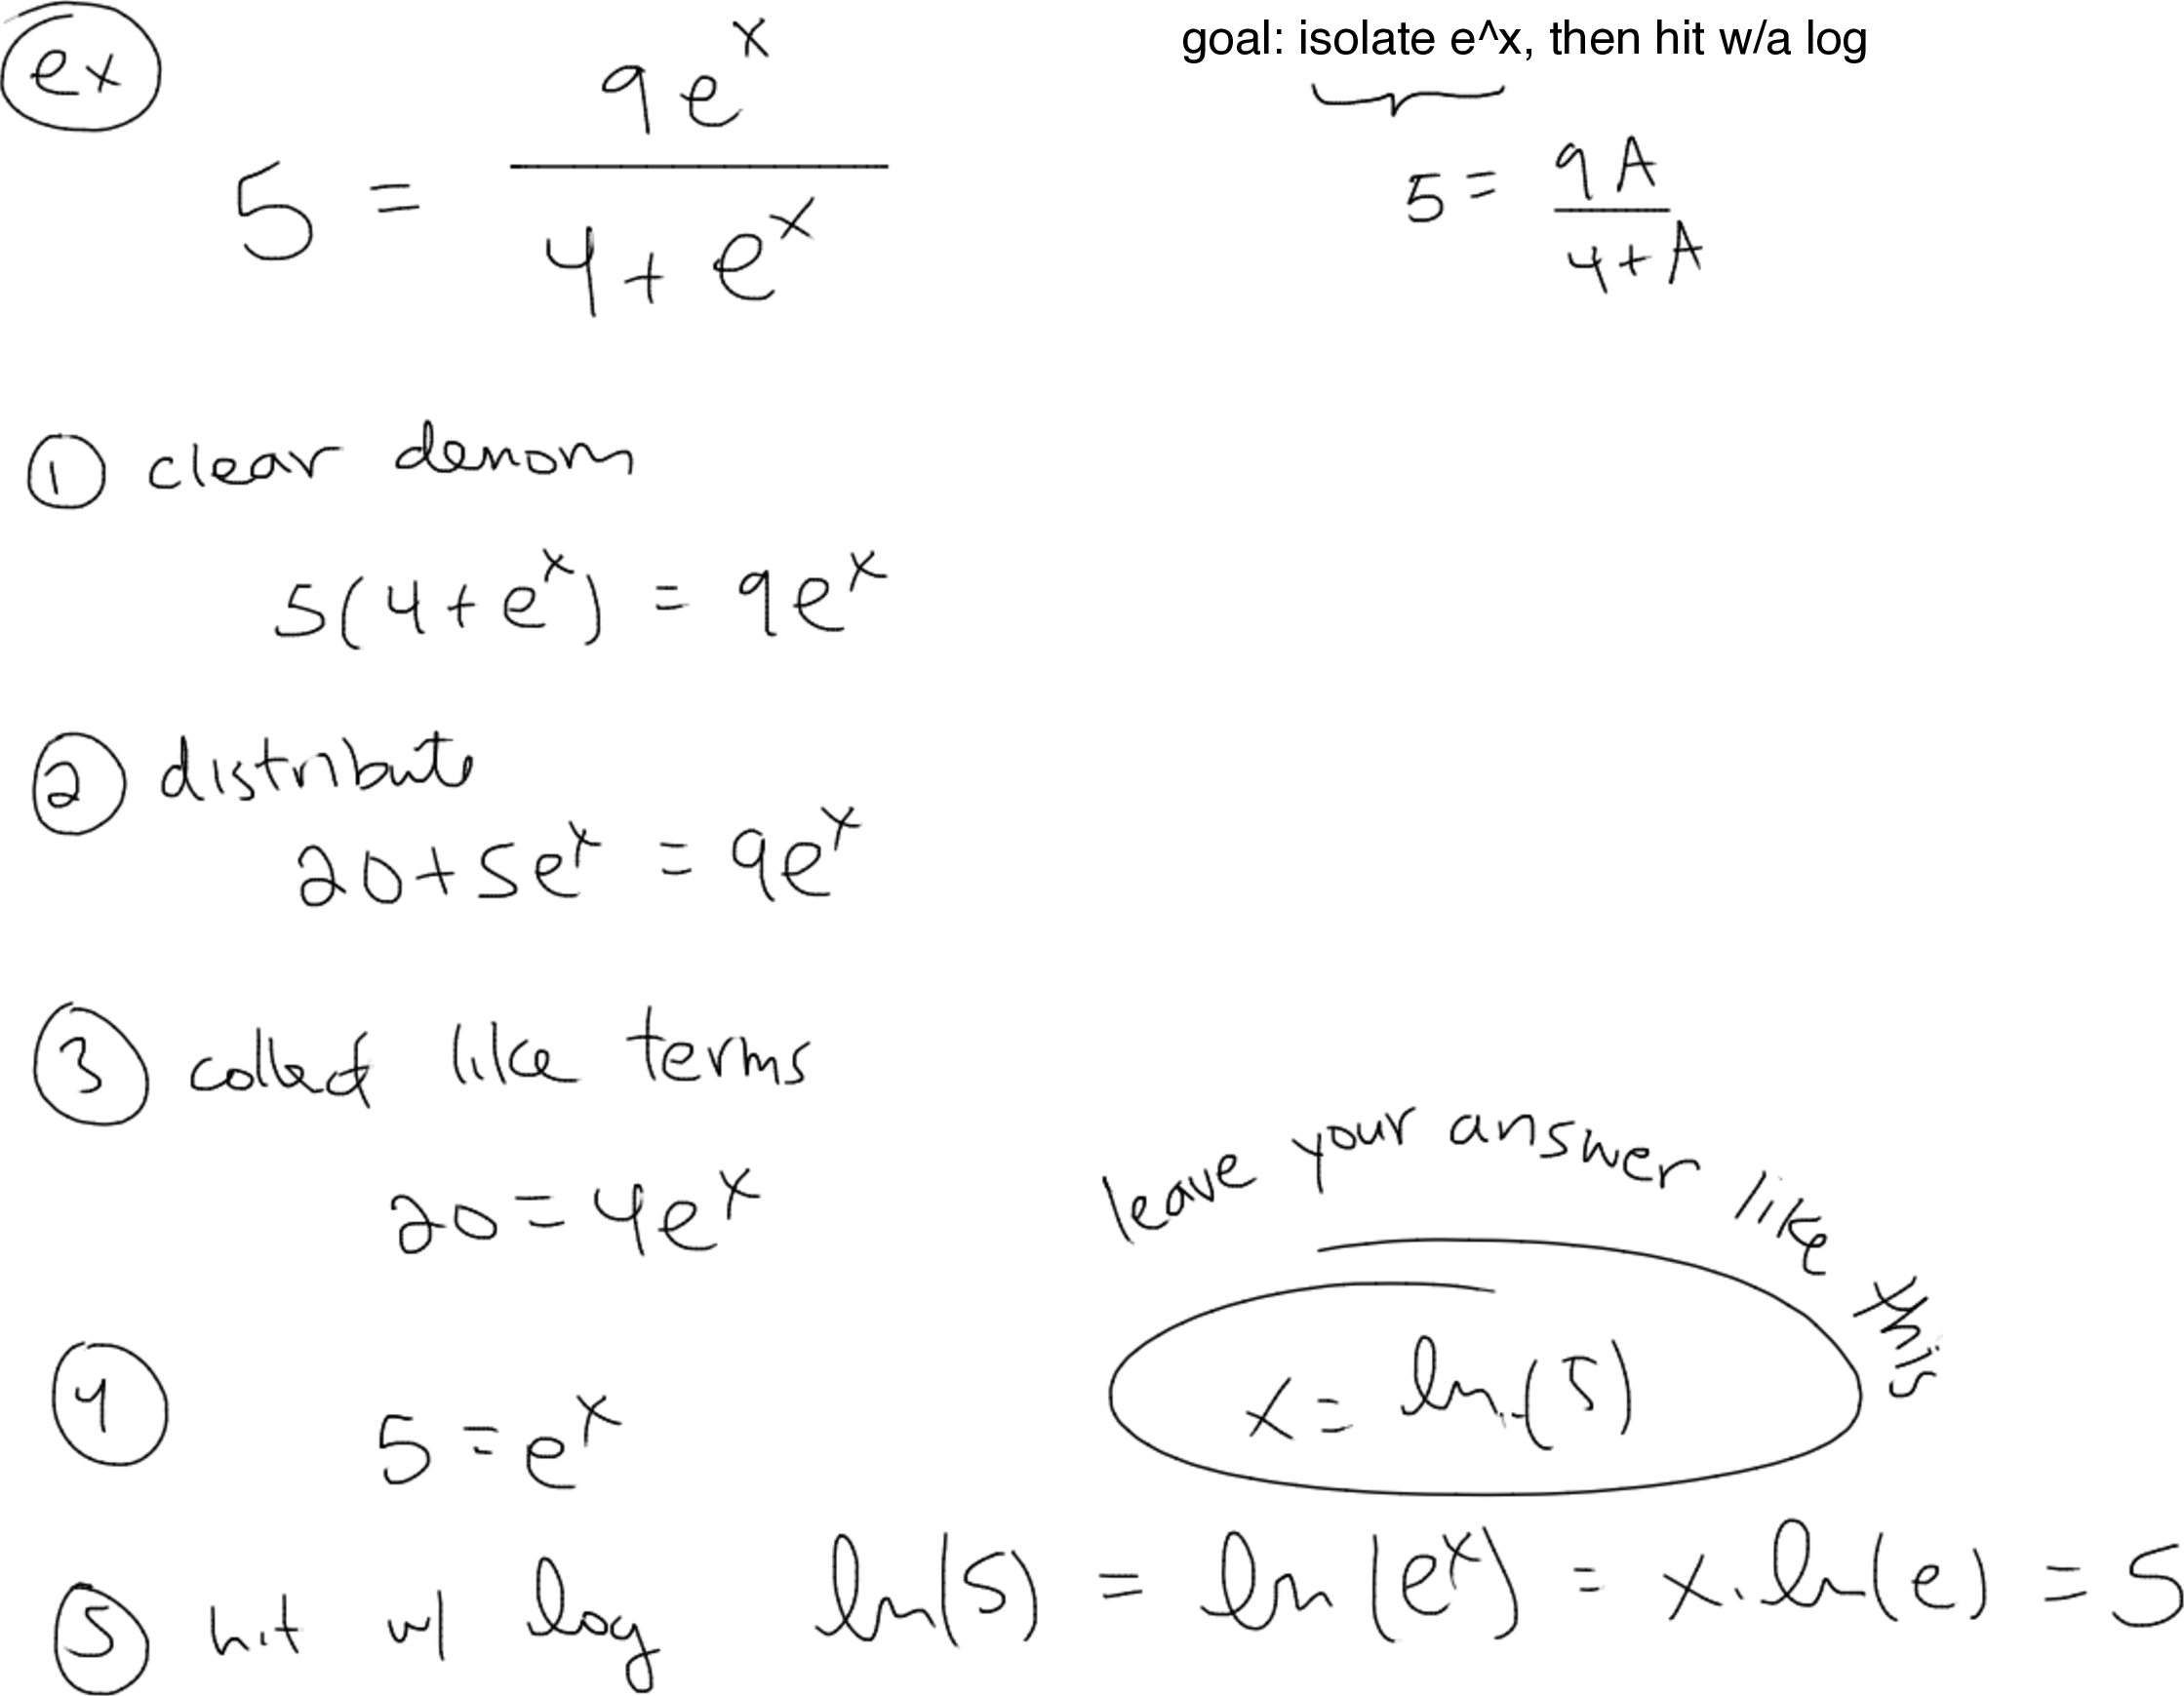 ex
goal: isolate e^x, then hit w/a log
5 = 9e^x / (4 + e^x)
5 = 9A / (4+A)
1 clear denom
5(4+e^x) = 9e^x
2 distribute
20+5e^x = 9e^x
3 collect like terms
20 = 4e^x
leave your answer like this
4 5 = e^x
x = ln(5)
5 hit w/ log ln(5) = ln(e^x) = x·ln(e) = 5